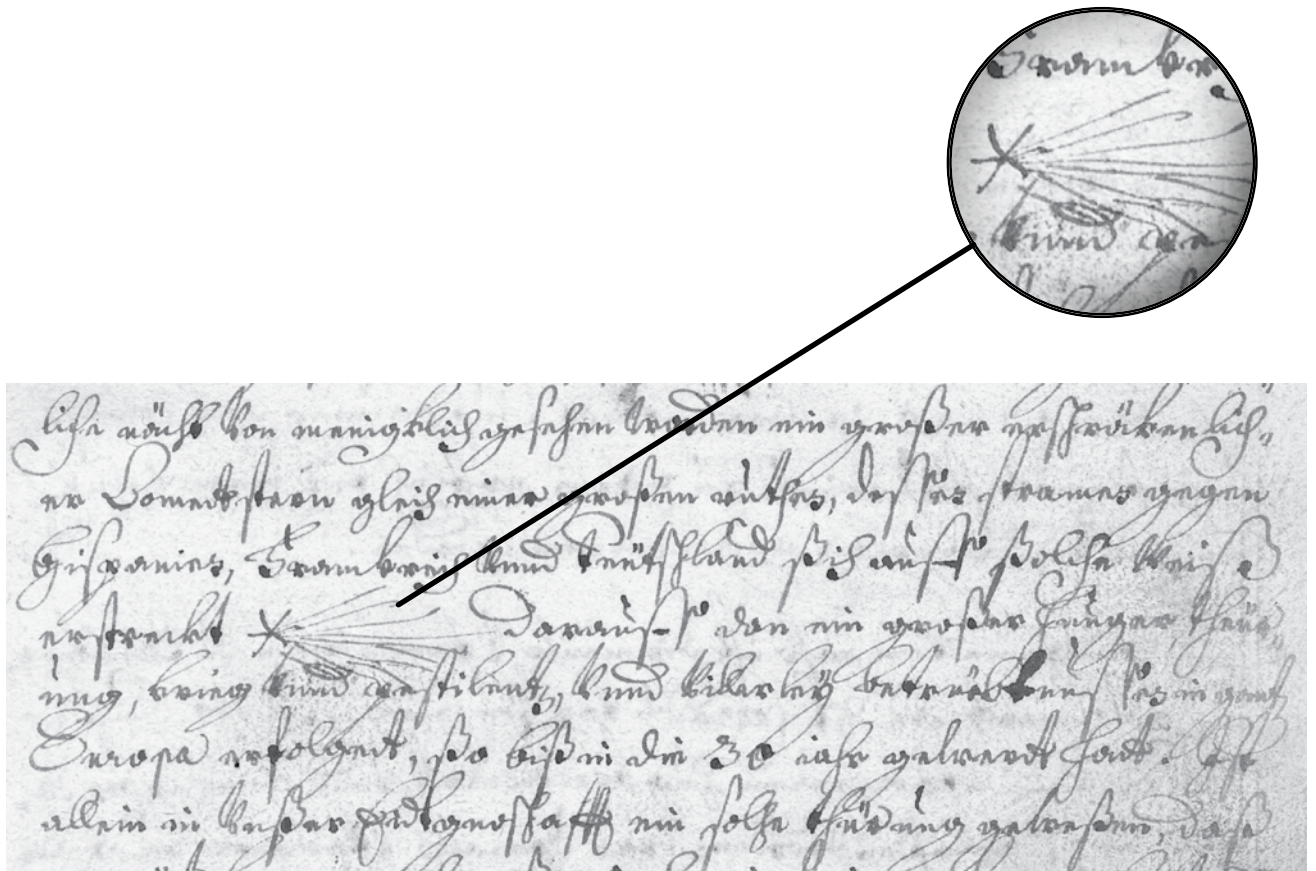 liche nächt von menigklich gesehen worden ein großer erschräkenlich-
er Comeetstern gleich einer großen ruthen, dessen stramen gegen
Hispanien, Frankreich vnnd Teütschland sich auff solche weiß
erstreckt darauff dan ein großer hunger theür-
ung, krieg vnnd pestilentz, vnnd villerleÿ betrüebtnussen in gantz
Europa erfolgent, so biß in die 30 iahr gewerdt hadt. Ist
allein in vnßer Eidtgnoschafft ein solche thürung geweßen, daß